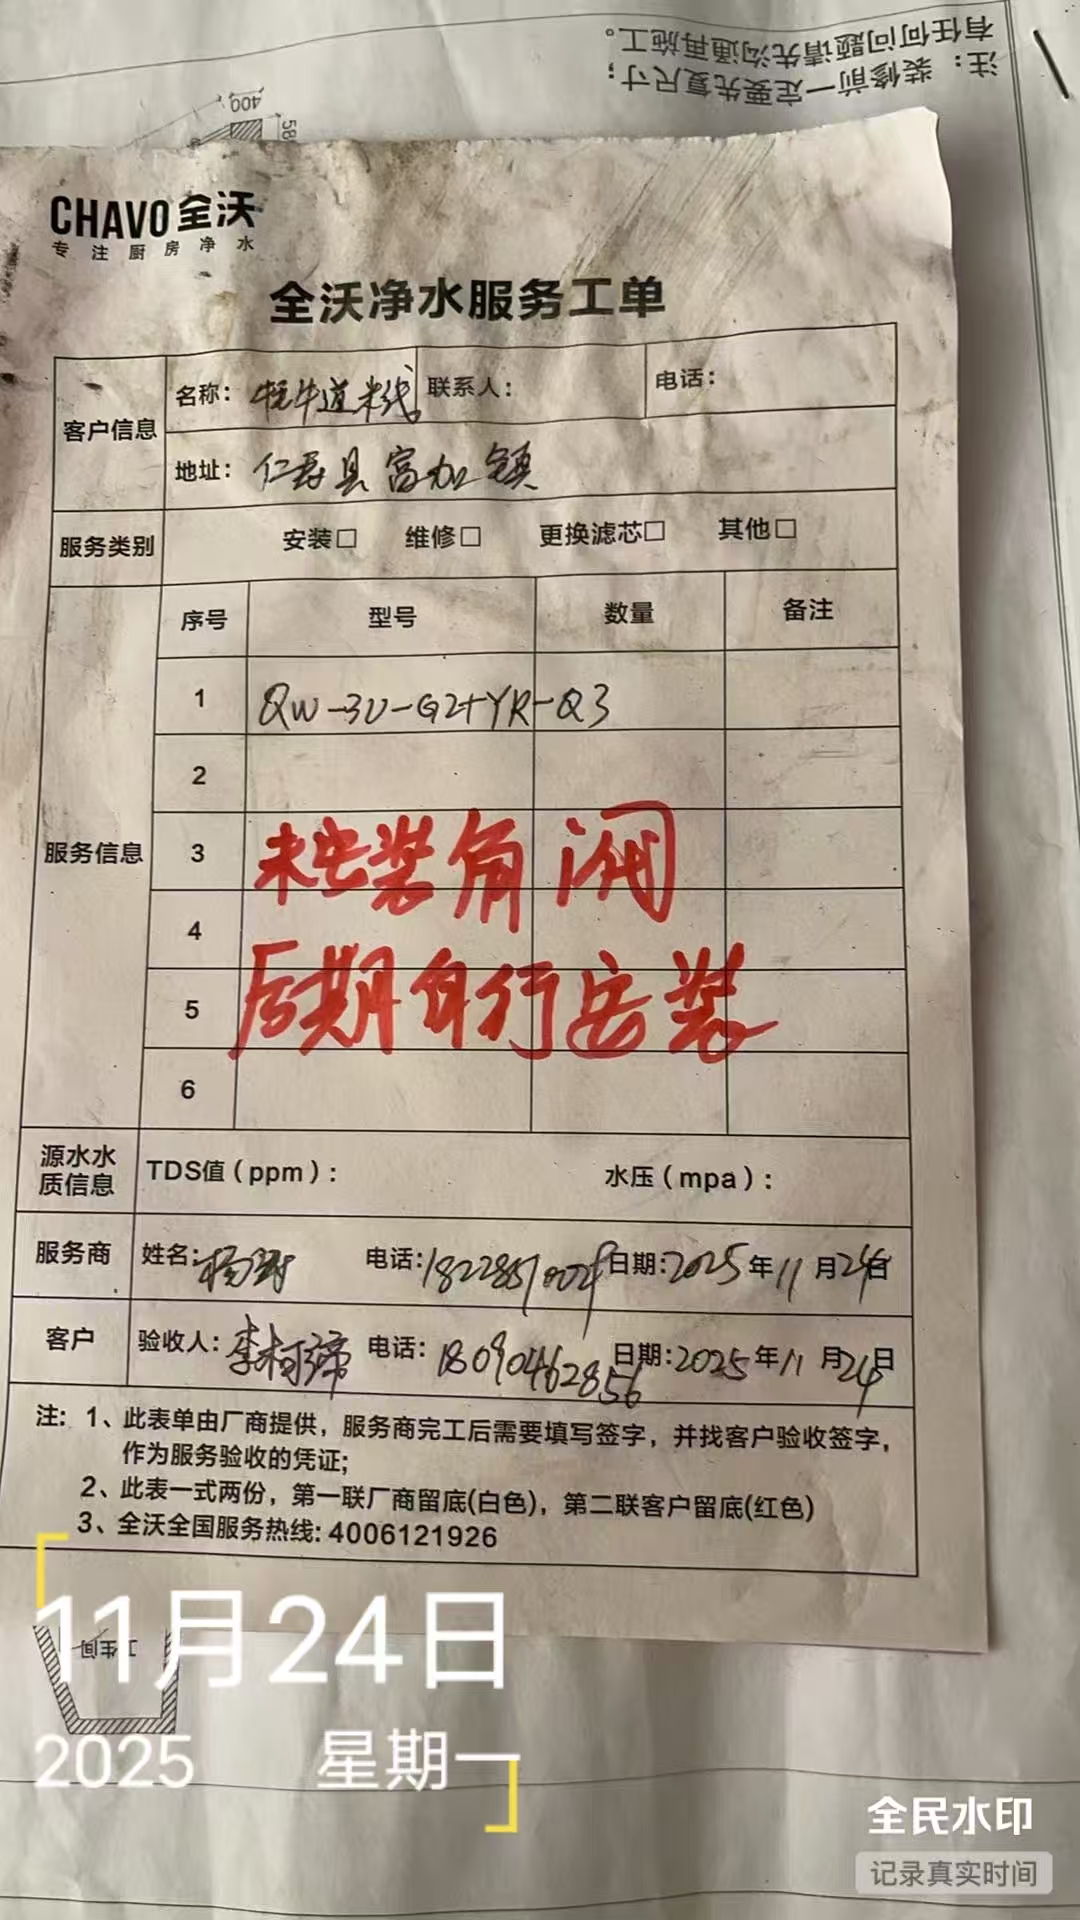 有任何问题请先沟通再施工。
注：装修前一定要先复尺寸；
400
58
CHAVO 全沃
专注厨房净水
全沃净水服务工单
客户信息
名称：牦牛道米线 联系人： 电话：
地址：仁寿县富加镇
服务类别 安装□ 维修□ 更换滤芯□ 其他□
服务信息
序号 型号 数量 备注
1 QW-3U-G2+YR-Q3
2
3 未安装角阀
4
5 后期自行安装
6
源水水质信息 TDS值（ppm）： 水压（mpa）：
服务商 姓名：杨 电话： 日期：2025年11月24日
客户 验收人：李柯 电话：18090462856 日期：2025年11月24日
注：1、此表单由厂商提供，服务商完工后需要填写签字，并找客户验收签字，
作为服务验收的凭证;
2、此表一式两份，第一联厂商留底(白色)，第二联客户留底(红色)
3、全沃全国服务热线: 4006121926
卫生间
11月24日
2025 星期一
全民水印
记录真实时间